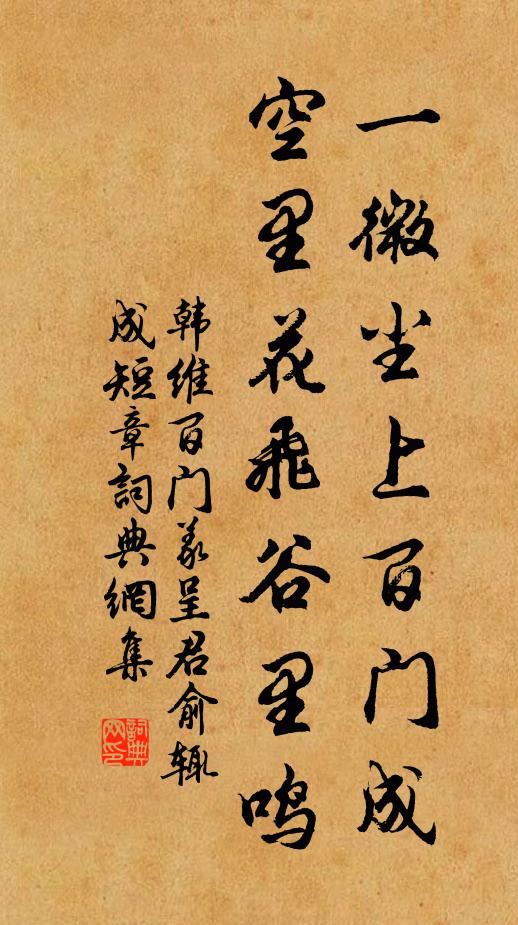 一微尘上百门成
空里花飞谷里鸣
韩维百门義呈君俞辄
成短章詞典網集
詞典
网印